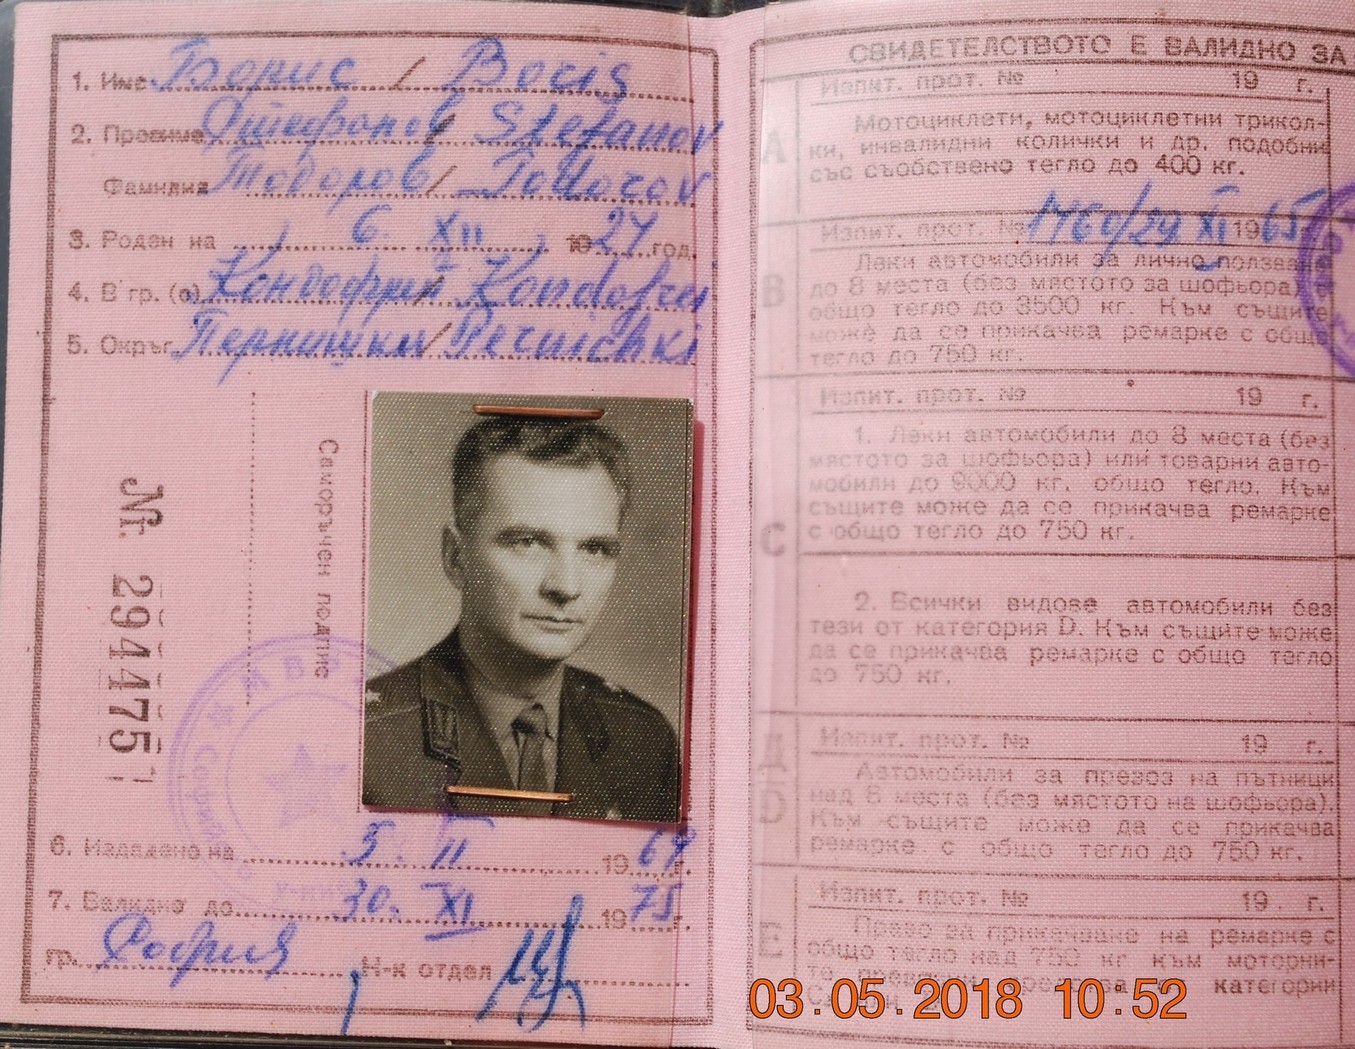 1. Име Борис / Boris
2. Презиме Стефанов / Stefanov
Фамилия Тодоров / Todorov
3. Роден на 6. XII 1927 год.
4. В гр. (с) Кондофрей / Kondofrei
5. Окръг Пернишки / Pernichki
Саморъчен подпис
Nr. 294475
МВР
6. Издадено на 5. II 1969 г.
7. Валидно до 30. XI 1975 г.
гр. София Н-к отдел
СВИДЕТЕЛСТВОТО Е ВАЛИДНО ЗА
Изпит. прот. № 19 г.
A
Мотоциклети, мотоциклетни трикол-
ки, инвалидни колички и др. подобни
със съобствено тегло до 400 кг.
Изпит. прот. № 1760/29 XI 1965
B
Леки автомобили за лично ползване
до 8 места (без мястото за шофьора) с
общо тегло до 3500 кг. Към същите
може да се прикачва ремарке с общо
тегло до 750 кг.
Изпит. прот. № 19 г.
C
1. Леки автомобили до 8 места (без
мястото за шофьора) или товарни авто-
мобили до 9000 кг. общо тегло. Към
същите може да се прикачва ремарке
с общо тегло до 750 кг.
2. Всички видове автомобили без
тези от категория D. Към същите може
да се прикачва ремарке с общо тегло
до 750 кг.
Изпит. прот. № 19 г.
Д
D
Автомобили за превоз на пътници
над 8 места (без мястото на шофьора).
Към същите може да се прикачва
ремарке с общо тегло до 750 кг.
Изпит. прот. № 19 г.
E
Право за прикачване на ремарке с
общо тегло над 750 кг към моторни-
те превозни средства от категории
03.05.2018 10:52